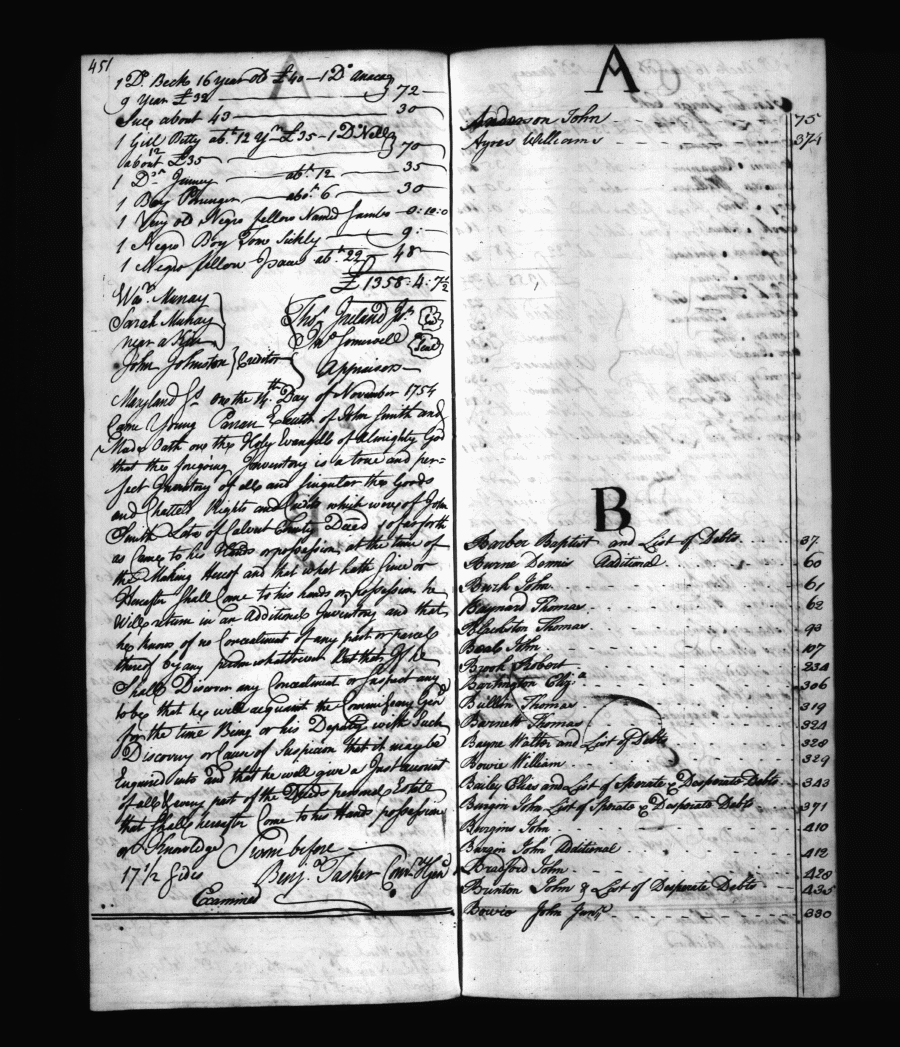 451
1 Do. Beck 16 year old £40 — 1 Do
9 Year £32 — 72
Suce about 43 — 30
1 Girl Betty abt. 12 Yrs £35 — 1 Do Nell
about 12 £35 — 70
1 Do. Jenney — abt. 12 — 35
1 Boy — abot. 6 — 30
1 Very old Negro fellow Named Jambo — 0:10:0
1 Negro Boy Tom Sickly — 9:
1 Negro fellow Isaac abt. 22 — 48
£ 1358:4:7½
Wm. Murray
Sarah Murray
near a Kin
John Johnston } Creditor
Thos. Ireland Jr.
Seal
Appraisors
Maryland Ss. on the 14th Day of November 1754
Came Young Parran Execut of John Smith and
Made Oath on the Holy Evangells of Almighty God
that the foregoing Inventory is a true and per=
fect Inventory of all and singular the Goods
and Chattels Rights and Credits which were of John
Smith Late of Calvert County Deced so far forth
as Came to his Hands or possession, at the time of
the Making Hereof and that what hath Since or
Hereafter Shall Come to his hands or possession he
Will return in an Additional Inventory and that
he knows of no Concealment of any part or parcel
thereof by any person whatsoever But that If he
Shall Discover any Concealment or Suspect any
to be that he will acquaint the Commissary Genl
for the time Being or his Deputy with Such
Discovery or Cause of Suspicion that it may be
Enquired into and that he will give a Just account
of all & every part of the Deceds personal Estate
that Shall hereafter Come to his Hands possession
or Knowledge Sworn before
17 1/2 Sides Benj. Tasker Comry Genl
Examined
A
Anderson John 75
Ayres Williams 374
B
Barber Baptist and List of Debts 37
Burne Dennis Additional 60
Burk John 61
Baynard Thomas 62
Blackston Thomas 93
Beale John 107
Brook Robert 234
Bartington Eliz.a 306
Bullin Thomas 319
Barnett Thomas 324
Bayne Walter and List of Debts 328
Bowie William 329
Bailey Elias and List of Sperate & Desperate Debts 343
Burgin John List of Sperate & Desperate Debts 371
Burgins John 410
Burgin John Additional 412
Bradford John 428
Brunton John & List of Desperate Debts 435
Bowie John Junr. 330